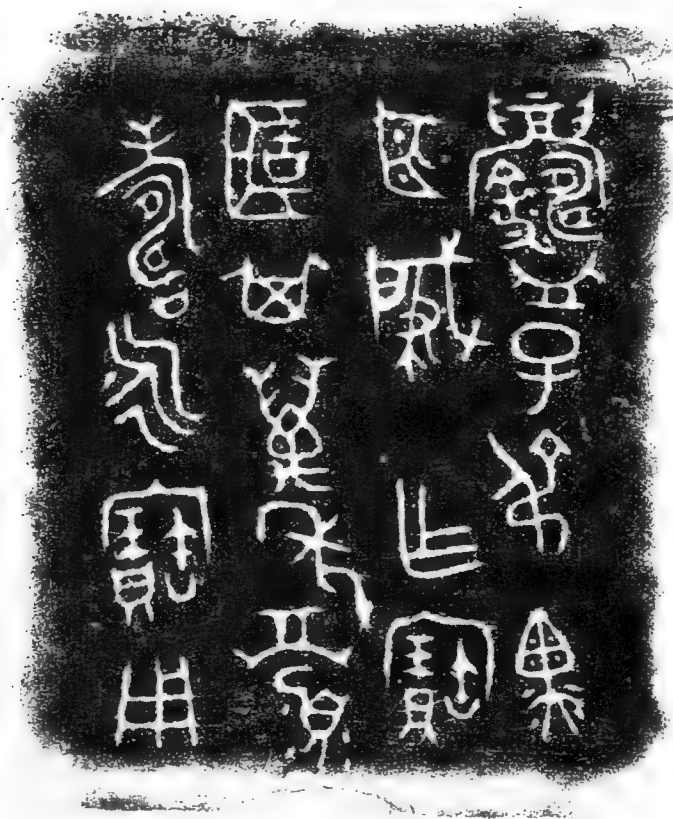 鑄子叔黑
𦣞肇乍寶
簠其萬年眉
壽永寶用